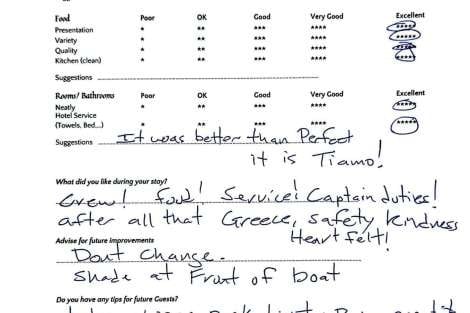 Food Poor OK Good Very Good Excellent
Presentation * ** *** **** *****
Variety * ** *** **** *****
Quality * ** *** **** *****
Kitchen (clean) * ** *** **** *****
Suggestions
Rooms/ Bathrooms Poor OK Good Very Good Excellent
Neatly * ** *** **** *****
Hotel Service
(Towels, Bed...) * ** *** **** *****
Suggestions It was better than Perfect
it is Tiamo!
What did you like during your stay?
Crew! food! Service! Captain duties!
after all that Greece, safety kindness
Heart felt!
Advise for future improvements
Dont change.
Shade at Frunt of boat
Do you have any tips for future Guests?